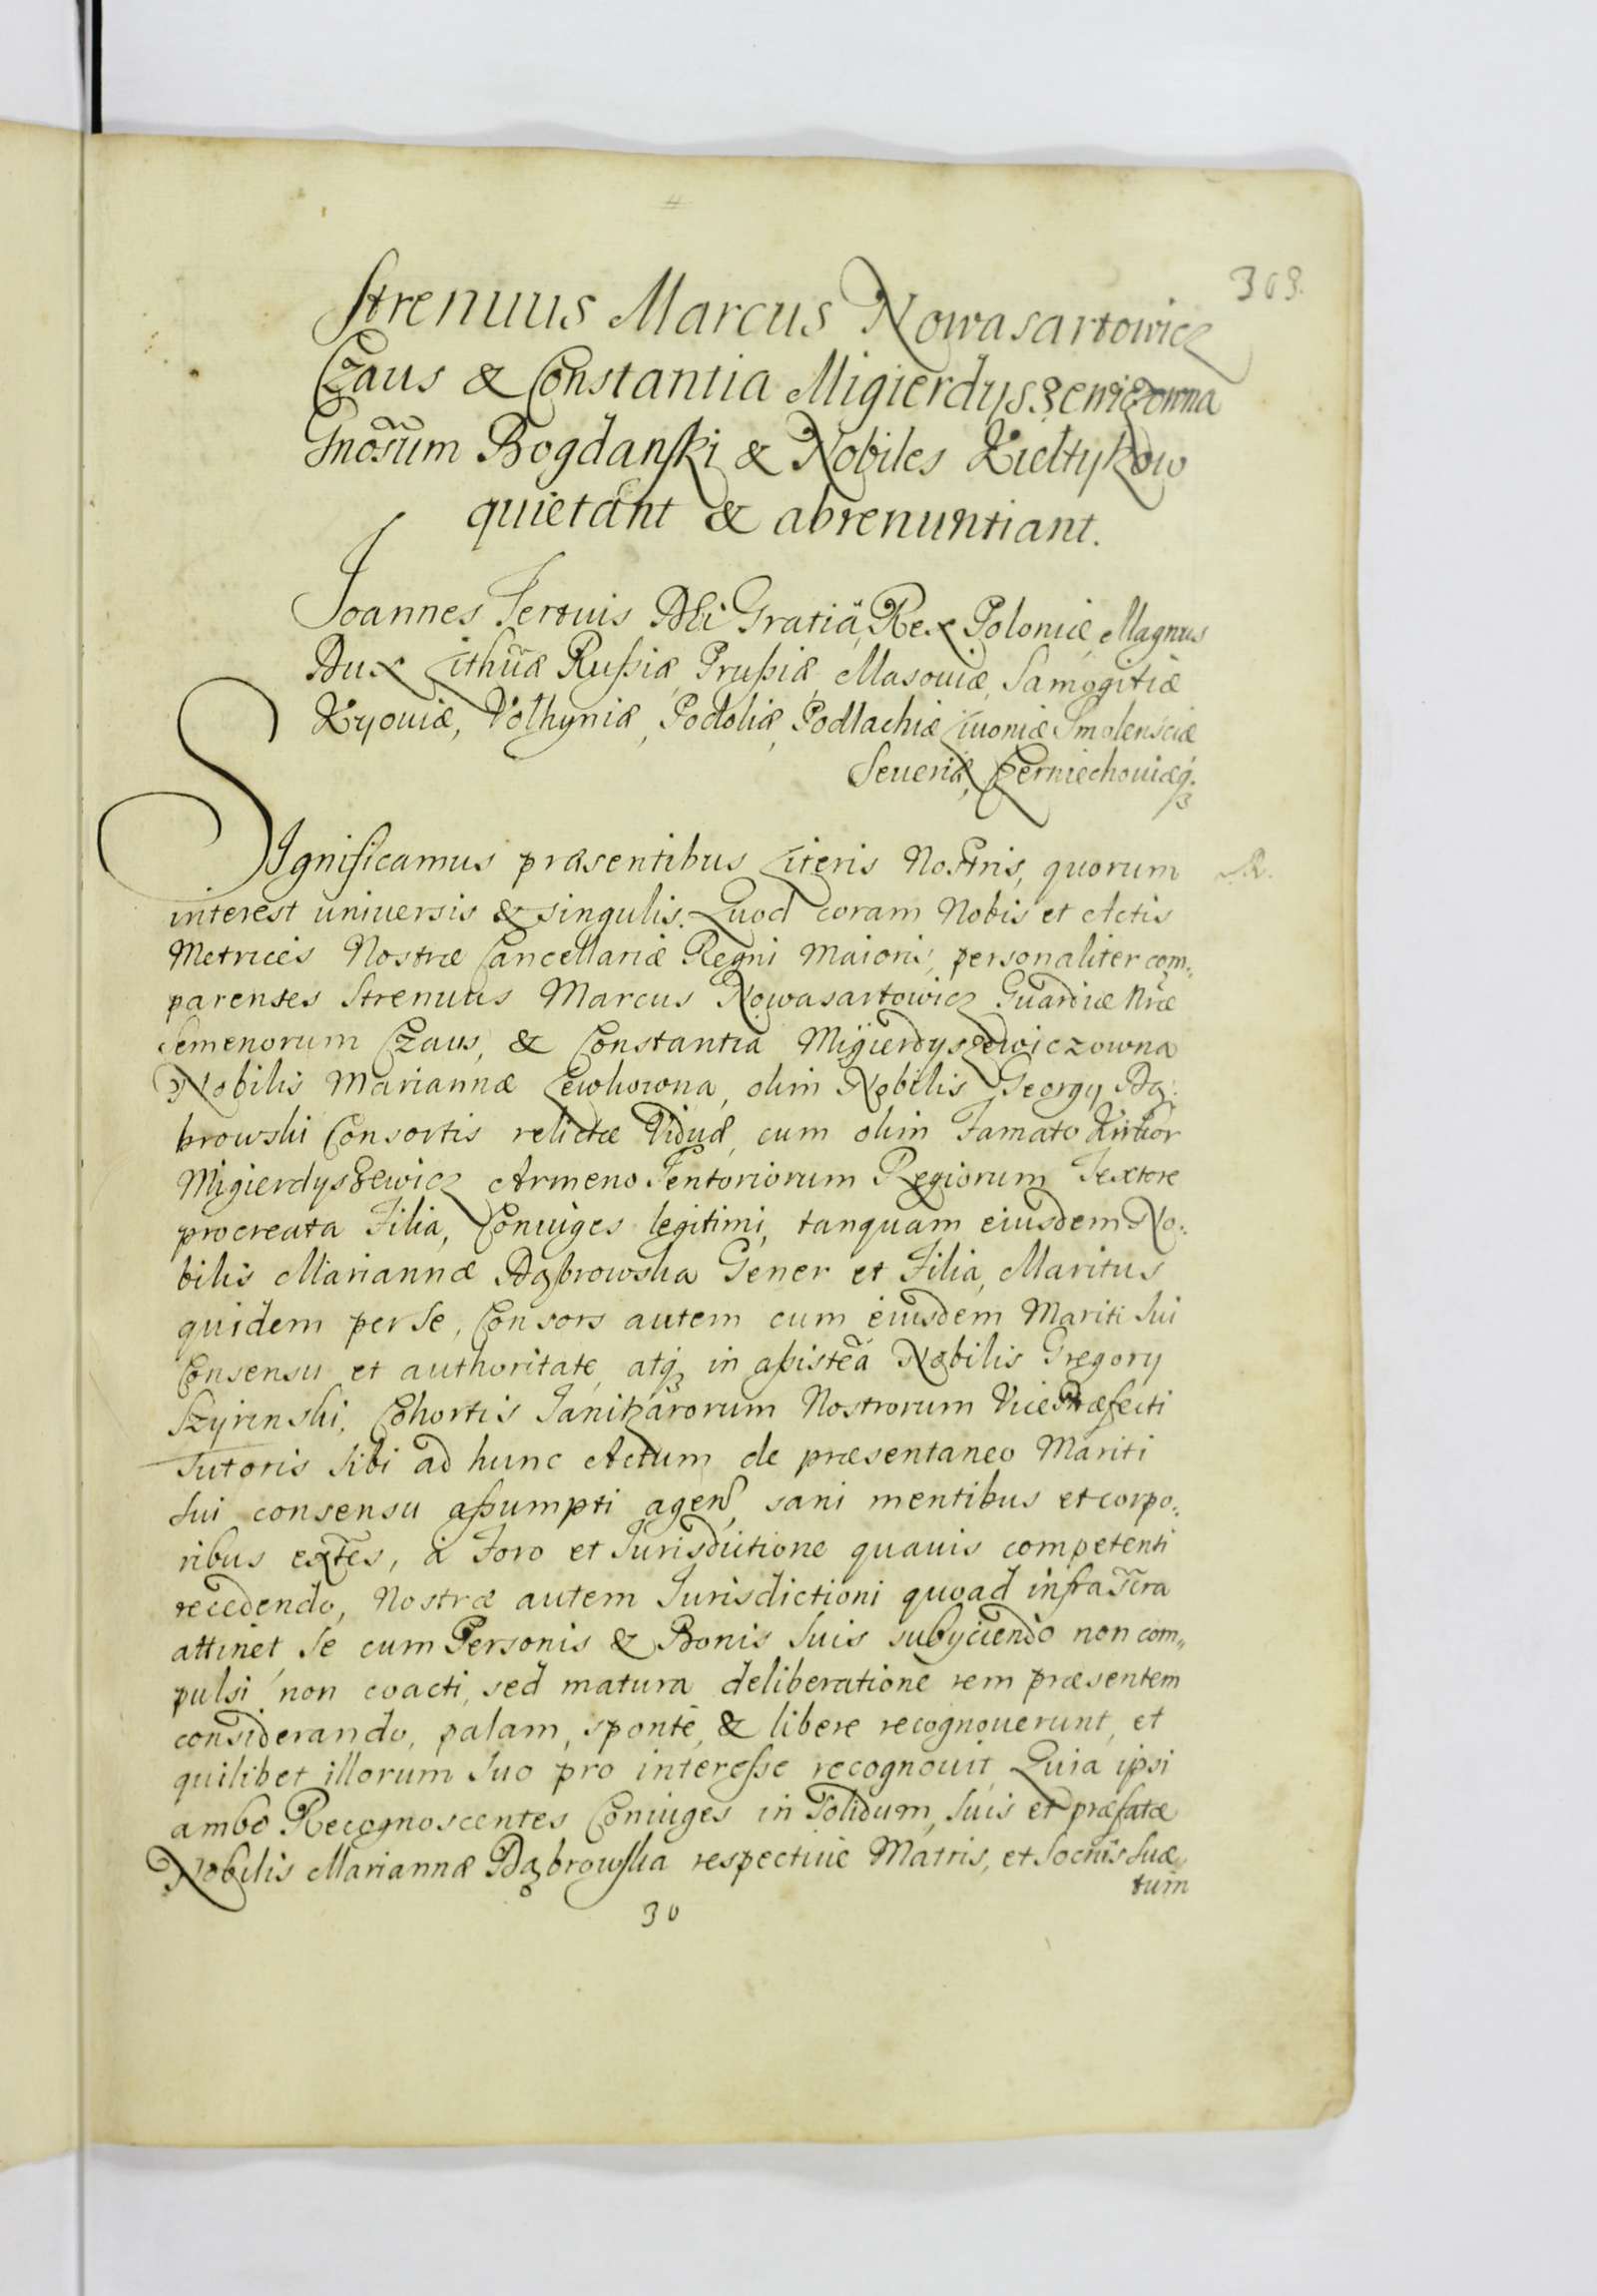 303.
Strenuus Marcus Nowasartowicz
Czaus & Constantia Migierdyszewiczowna
Gnosum Bogdanski & Nobiles Kieltykow
quietant & abrenuntiant.
Joannes Tertius Dei Gratiâ, Rex Poloniæ, Magnus
Dux Lithuæ Russiæ, Prussiæ, Masouiæ, Samogitiæ
Kyouiæ, Volhyniæ, Podoliæ, Podlachiæ Liuoniæ Smolensciæ
Seueriæ, Czerniechouiæq3.
Significamus præsentibus Literis Nostris, quorum
interest uniuersis & singulis. Quod coram Nobis et Actis
Metrices Nostræ Cancellariæ Regni Maioris, personaliter com„
parentes Strenuus Marcus Nowasartowicz Guardiæ Nræ
Semenorum Czaus, & Constantia Migierdyszewiczowna
Nobilis Mariannæ Lewkowna, olim Nobilis Georgy Dą:
browski Consortis relictæ Viduæ, cum olim Famato
Migierdyszewicz Armeno Tentoriorum Regiorum Textore
procreata Filia, Coniuges legitimi, tanquam eiusdem No:
bilis Mariannæ Dąbrowska Gener et Filia, Maritus
quidem per se, Consors autem cum eiusdem Mariti sui
Consensu et authoritate, atq3 in assistẽa Nobilis Gregory
Szyrinski, Cohortis Janitzarorum Nostrorum Vice Præfecti
Tutoris sibi ad hunc Actum de præsentaneo Mariti
sui consensu assumpti agens, sani mentibus et corpo:
ribus exẽtes, à Foro et Jurisdictione quauis competenti
recedendo, Nostræ autem Jurisdictioni quoad infra scra
attinet se cum Personis & Bonis suis subyciendo non com„
pulsi, non coacti, sed matura deliberatione rem præsentem
considerando, palam, sponte, & libere recognouerunt, et
quilibet illorum suo pro interesse recognouit, Quia ipsi
ambo Recognoscentes Coniuges in solidum, suis et præfatæ
Nobilis Mariannæ Dąbrowska respectiue Matris, et Socrus suæ,
tum
30